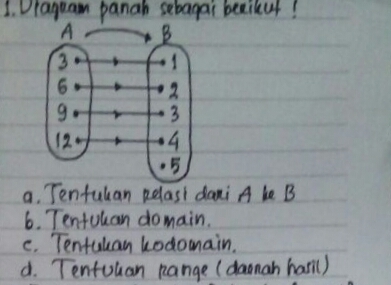 1. Diagram panah sebagai berikut !
A B
3 1
6 2
9 3
12 4
5
a. Tentukan relasi dari A ke B
b. Tentukan domain.
c. Tentukan kodomain.
d. Tentukan range (daerah hasil)